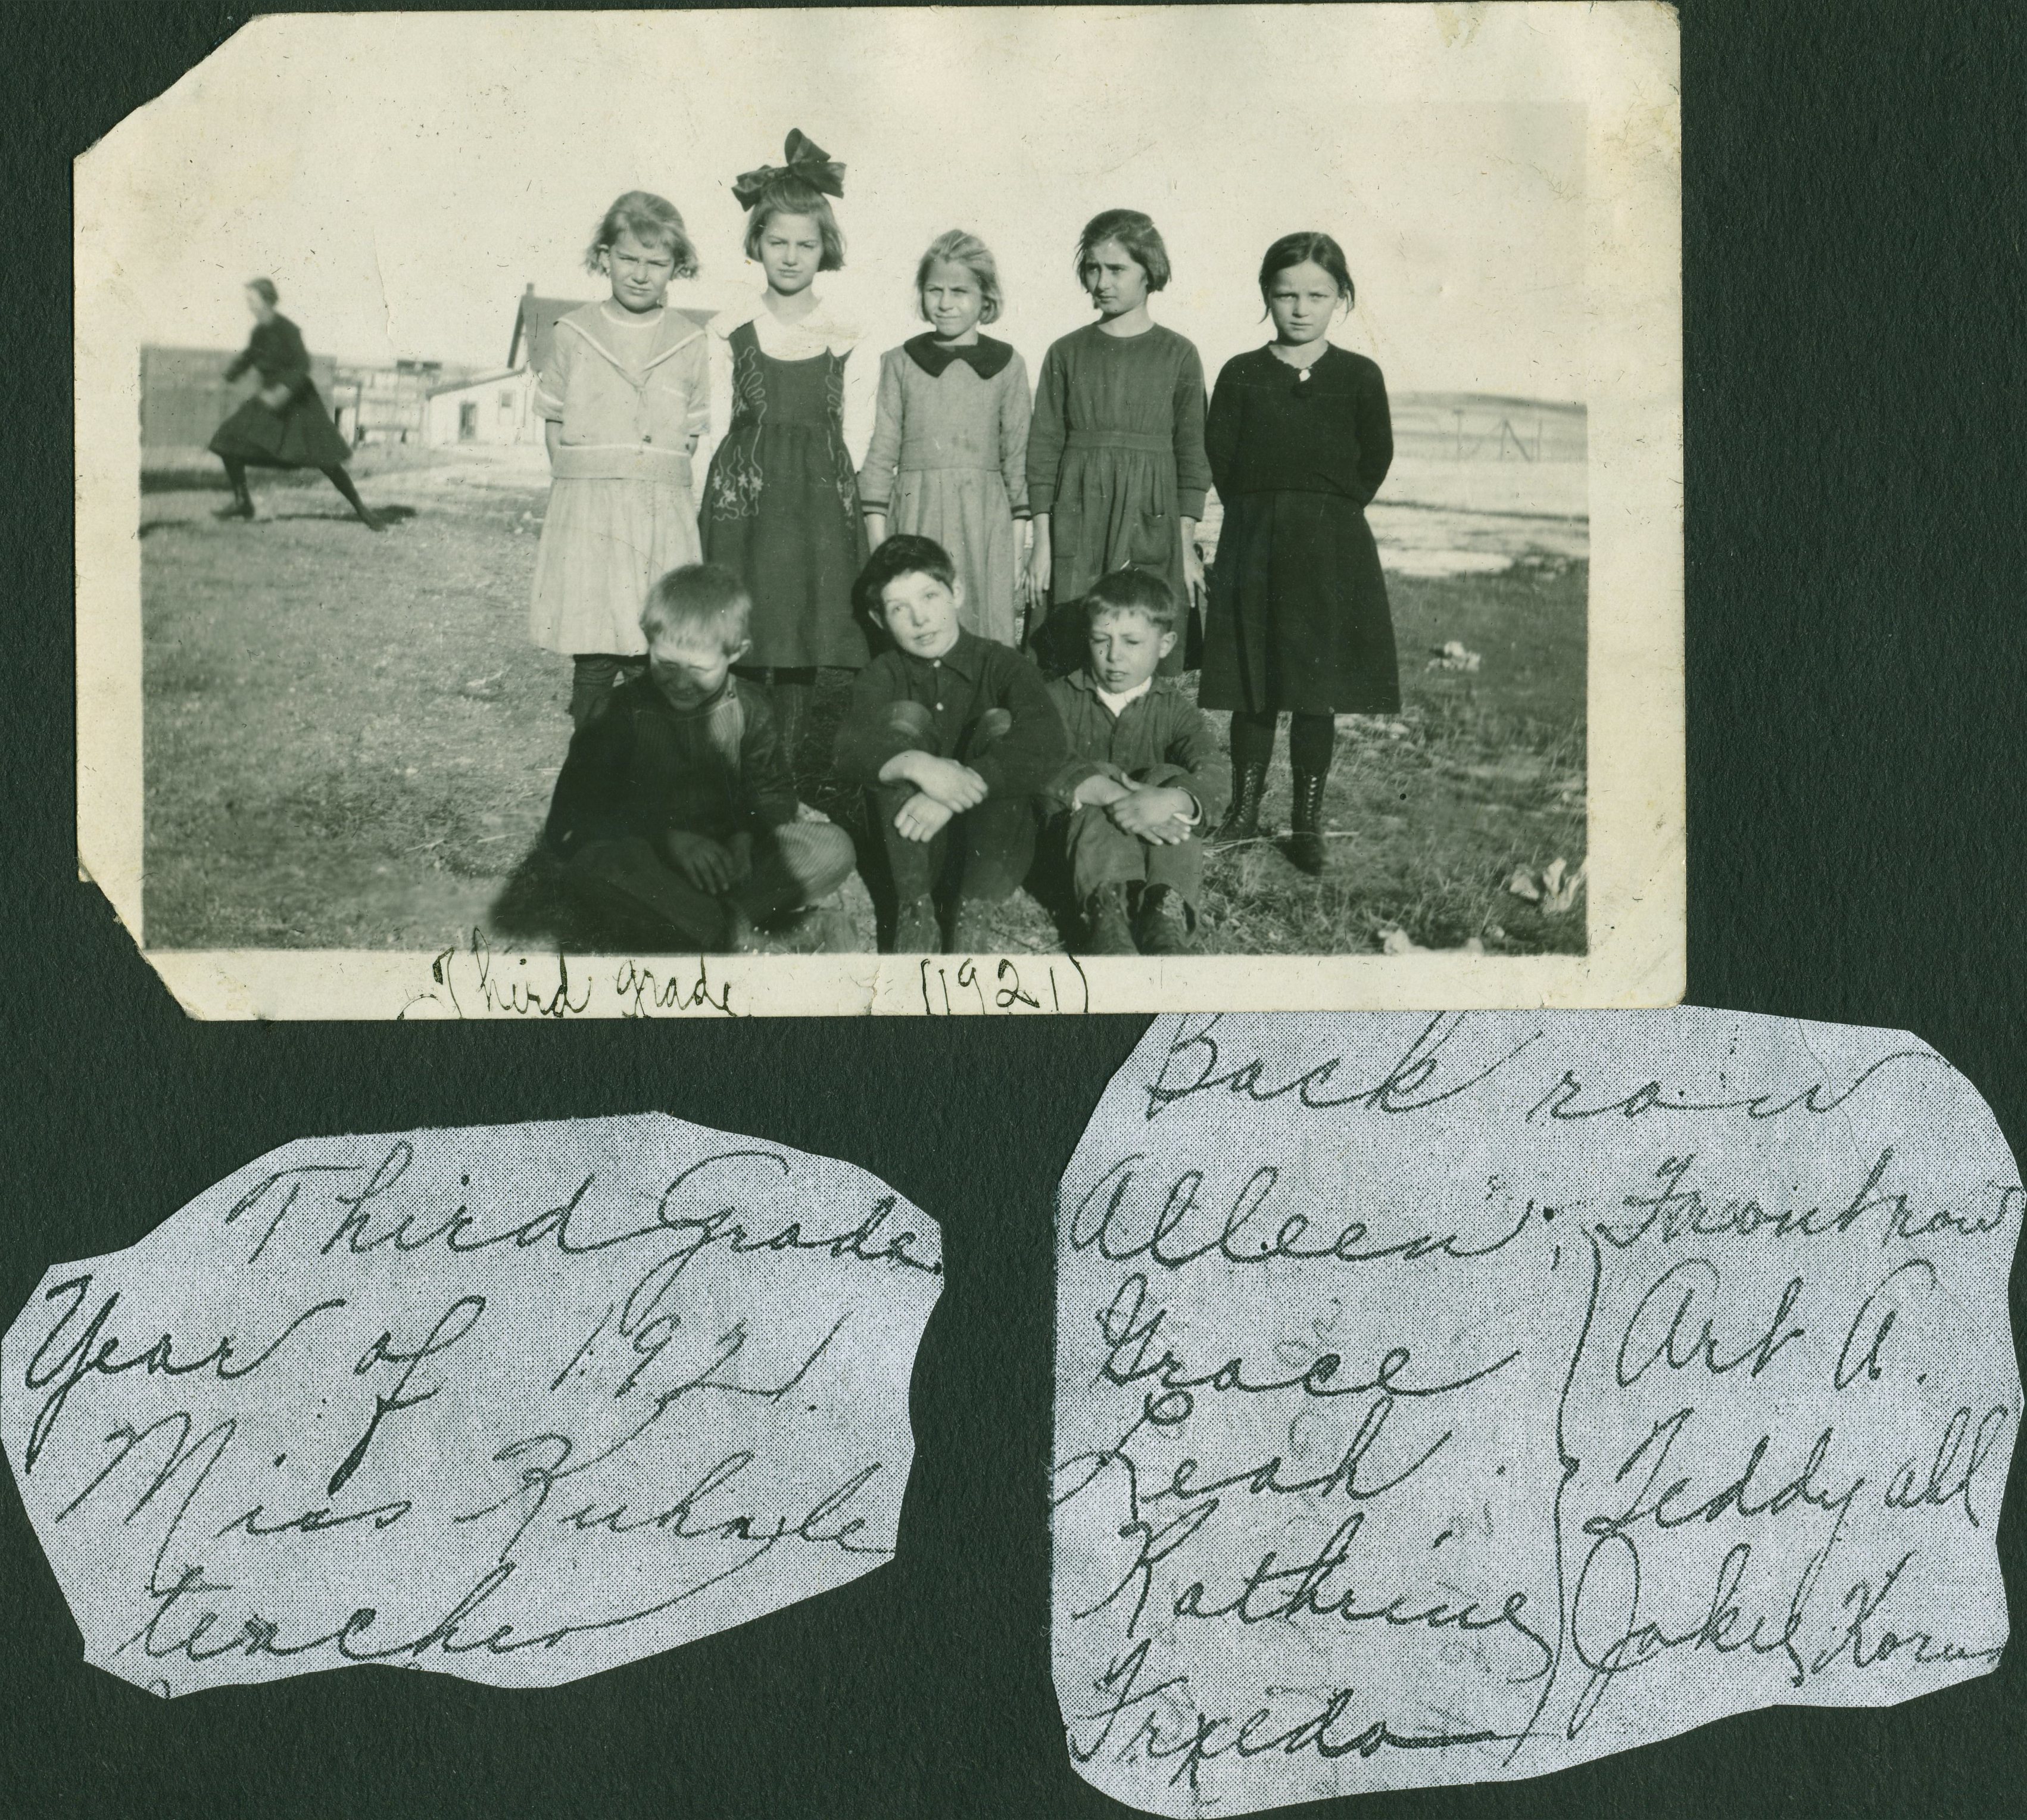 Third grade (1921)
Third Grade
Year of 1921.
Miss Kuhnle
teacher
Back row
Alleen
Grace
Leah
Kathrine
Frieda
Front row
Art A.
Teddy all
Jakey Korn